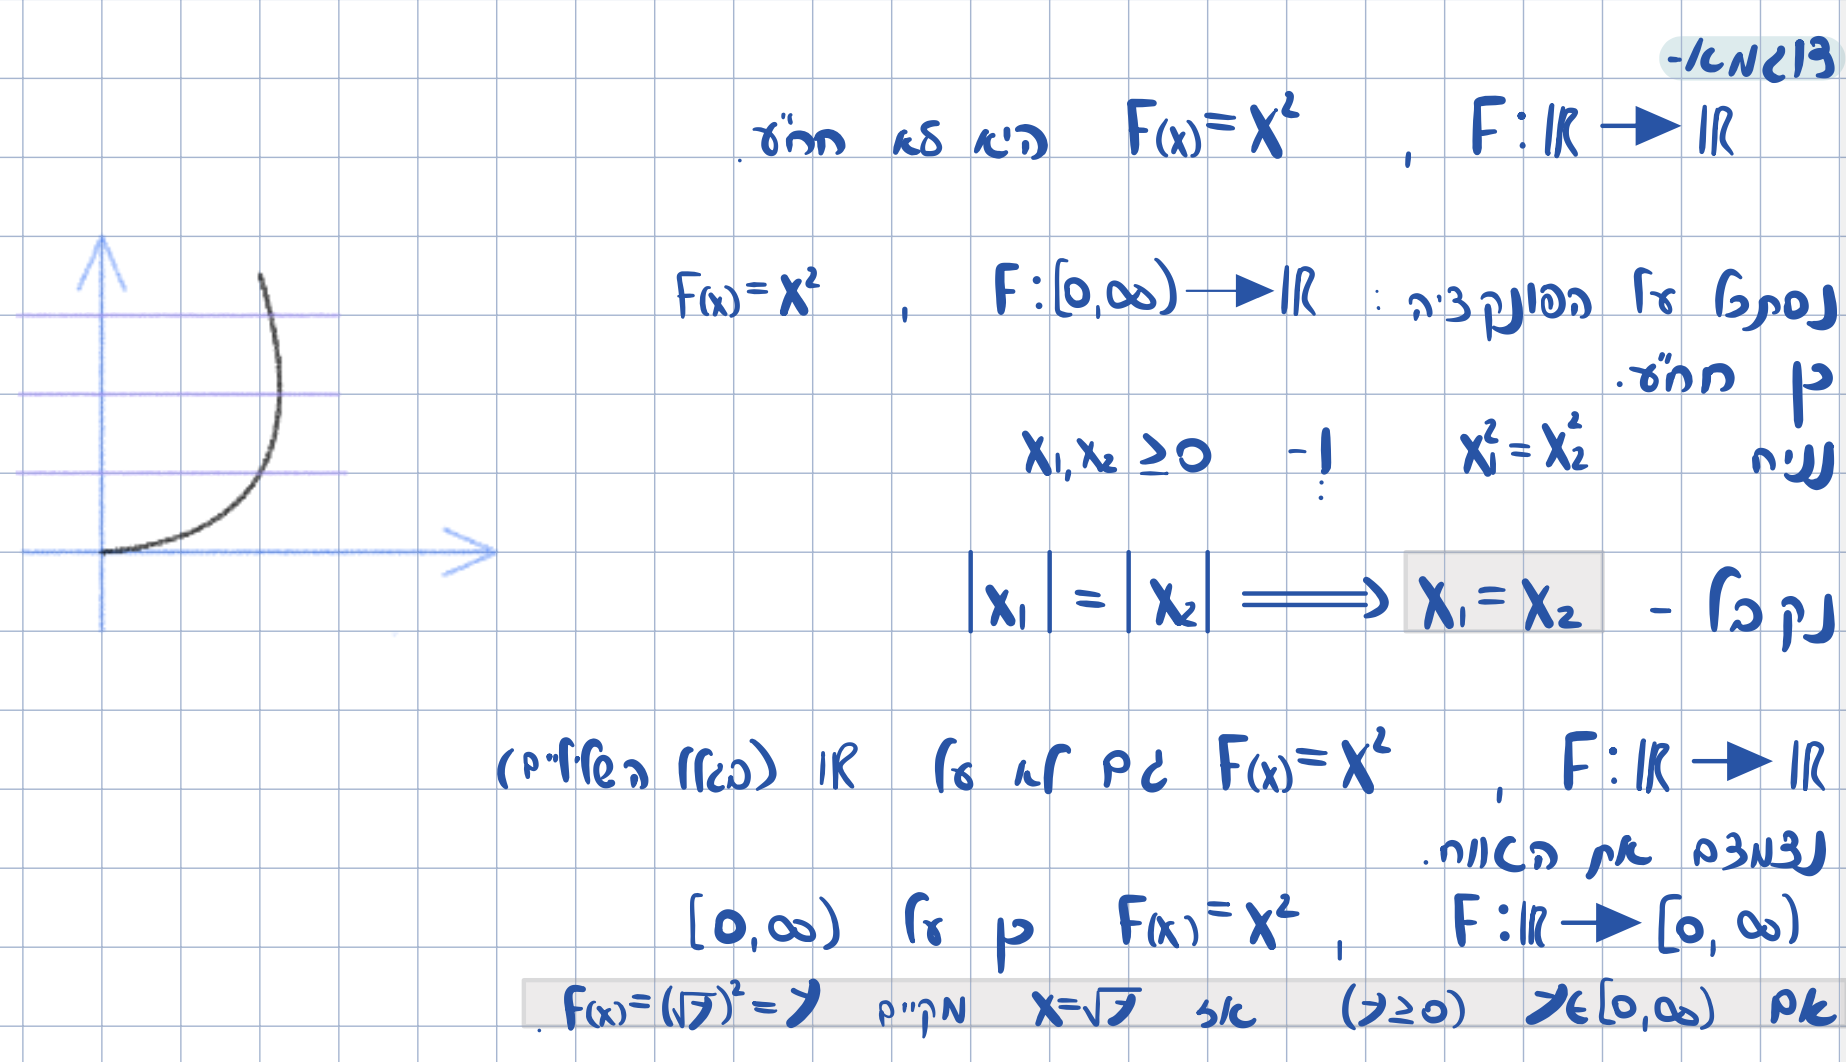 דוגמא-
F: ℝ → ℝ , F(x) = x² היא לא חח"ע.
נסתכל על הפונקציה: F: [0,∞) → ℝ , F(x) = x²
כן חח"ע.
נניח x₁² = x₂² ו- x₁, x₂ ≥ 0 :
נקבל - |x₁| = |x₂| ⟹ x₁ = x₂
F: ℝ → ℝ , F(x) = x² גם לא על ℝ (בגלל השליליים)
נצמצם את הטווח.
F: ℝ → [0, ∞) , F(x) = x² כן על [0,∞)
אם y∈[0,∞) (y≥0) אז x=√y מקיים F(x)=(√y)²=y .